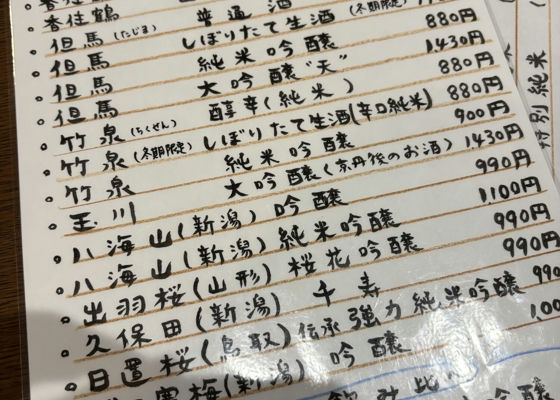 香住鶴 普通酒
但馬(たじま) しぼりたて生酒(冬期限定)
但馬 純米吟醸 880円
但馬 大吟醸"天" 1,430円
竹泉(ちくせん) 醇辛(純米) 880円
竹泉(冬期限定) しぼりたて生酒(辛口純米) 880円
竹泉 純米吟醸 900円
玉川 大吟醸(京丹後のお酒) 1430円
八海山(新潟) 吟醸 990円
八海山(新潟) 純米吟醸 1,100円
出羽桜(山形) 桜花吟醸 990円
久保田(新潟) 千寿 990円
日置桜(鳥取) 伝承強力純米吟醸 990
梅(新潟) 吟醸
飲み比べ
特別純米